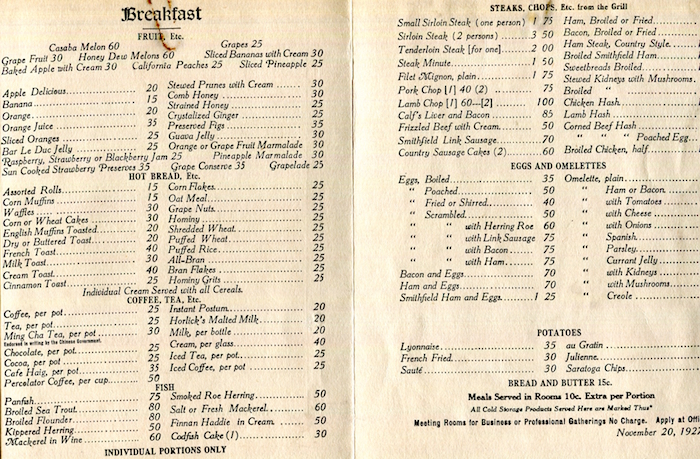 Breakfast
FRUIT, Etc.
Casaba Melon 60 Grapes 25
Grape Fruit 30 Honey Dew Melons 60 Sliced Bananas with Cream 30
Baked Apple with Cream 30 California Peaches 25 Sliced Pineapple 25
Apple Delicious 20
Banana 15
Orange 20
Orange Juice 35
Sliced Oranges 25
Bar Le Duc Jelly 25
Stewed Prunes with Cream 30
Comb Honey 30
Strained Honey 25
Crystalized Ginger 25
Preserved Figs 35
Guava Jelly 30
Orange or Grape Fruit Marmalade 30
Raspberry, Strawberry or Blackberry Jam 25 Pineapple Marmalade 30
Sun Cooked Strawberry Preserves 35 Grape Conserve 35 Grapelade 25
HOT BREAD, Etc.
Assorted Rolls 15
Corn Muffins 15
Waffles 30
Corn or Wheat Cakes 30
English Muffins Toasted 20
Dry or Buttered Toast 20
French Toast 40
Milk Toast 30
Cream Toast 40
Cinnamon Toast 25
Corn Flakes 25
Oat Meal 25
Grape Nuts 25
Hominy 25
Shredded Wheat 25
Puffed Wheat 25
Puffed Rice 25
All-Bran 25
Bran Flakes 25
Hominy Grits 25
Individual Cream Served with all Cereals.
COFFEE, TEA, Etc.
Coffee, per pot 25
Tea, per pot 25
Ming Cha Tea, per pot 30
Endorsed in writing by the Chinese Government.
Chocolate, per pot 25
Cocoa, per pot 25
Cafe Haig, per pot 35
Percolator Coffee, per cup 50
Instant Postum 20
Horlick's Malted Milk 20
Milk, per bottle 20
Cream, per glass 40
Iced Tea, per pot 25
Iced Coffee, per pot 25
FISH
Panfish 75
Broiled Sea Trout 80
Broiled Flounder 80
Kippered Herring 50
Mackerel in Wine 60
Smoked Roe Herring 50
Salt or Fresh Mackerel 60
Finnan Haddie in Cream 50
Codfish Cake (1) 30
INDIVIDUAL PORTIONS ONLY
STEAKS, CHOPS, Etc. from the Grill
Small Sirloin Steak (one person) 1 75
Sirloin Steak (2 persons) 3 50
Tenderloin Steak [for one] 2 00
Steak Minute 1 50
Filet Mignon, plain 1 75
Pork Chop [1] 40 (2) 75
Lamb Chop [1] 60—[2] 1 00
Calf's Liver and Bacon 85
Frizzled Beef with Cream 50
Smithfield Link Sausage 70
Country Sausage Cakes (2) 60
Ham, Broiled or Fried
Bacon, Broiled or Fried
Ham Steak, Country Style
Broiled Smithfield Ham
Sweetbreads Broiled
Stewed Kidneys with Mushrooms
Broiled "
Chicken Hash
Lamb Hash
Corned Beef Hash
" " " Poached Egg
Broiled Chicken, half
EGGS AND OMELETTES
Eggs, Boiled 35
" Poached 50
" Fried or Shirred 40
" Scrambled 50
" " with Herring Roe 60
" " with Link Sausage 75
" " with Bacon 75
" " with Ham 75
Bacon and Eggs 70
Ham and Eggs 70
Smithfield Ham and Eggs 1 25
Omelette, plain
" Ham or Bacon
" with Tomatoes
" with Cheese
" with Onions
" Spanish
" Parsley
" Currant Jelly
" with Kidneys
" with Mushrooms
" Creole
POTATOES
Lyonnaise 35
French Fried 30
Sauté 30
au Gratin
Julienne
Saratoga Chips
BREAD AND BUTTER 15c.
Meals Served in Rooms 10c. Extra per Portion
All Cold Storage Products Served Here are Marked Thus*
Meeting Rooms for Business or Professional Gatherings No Charge. Apply at Offi
November 20, 1927